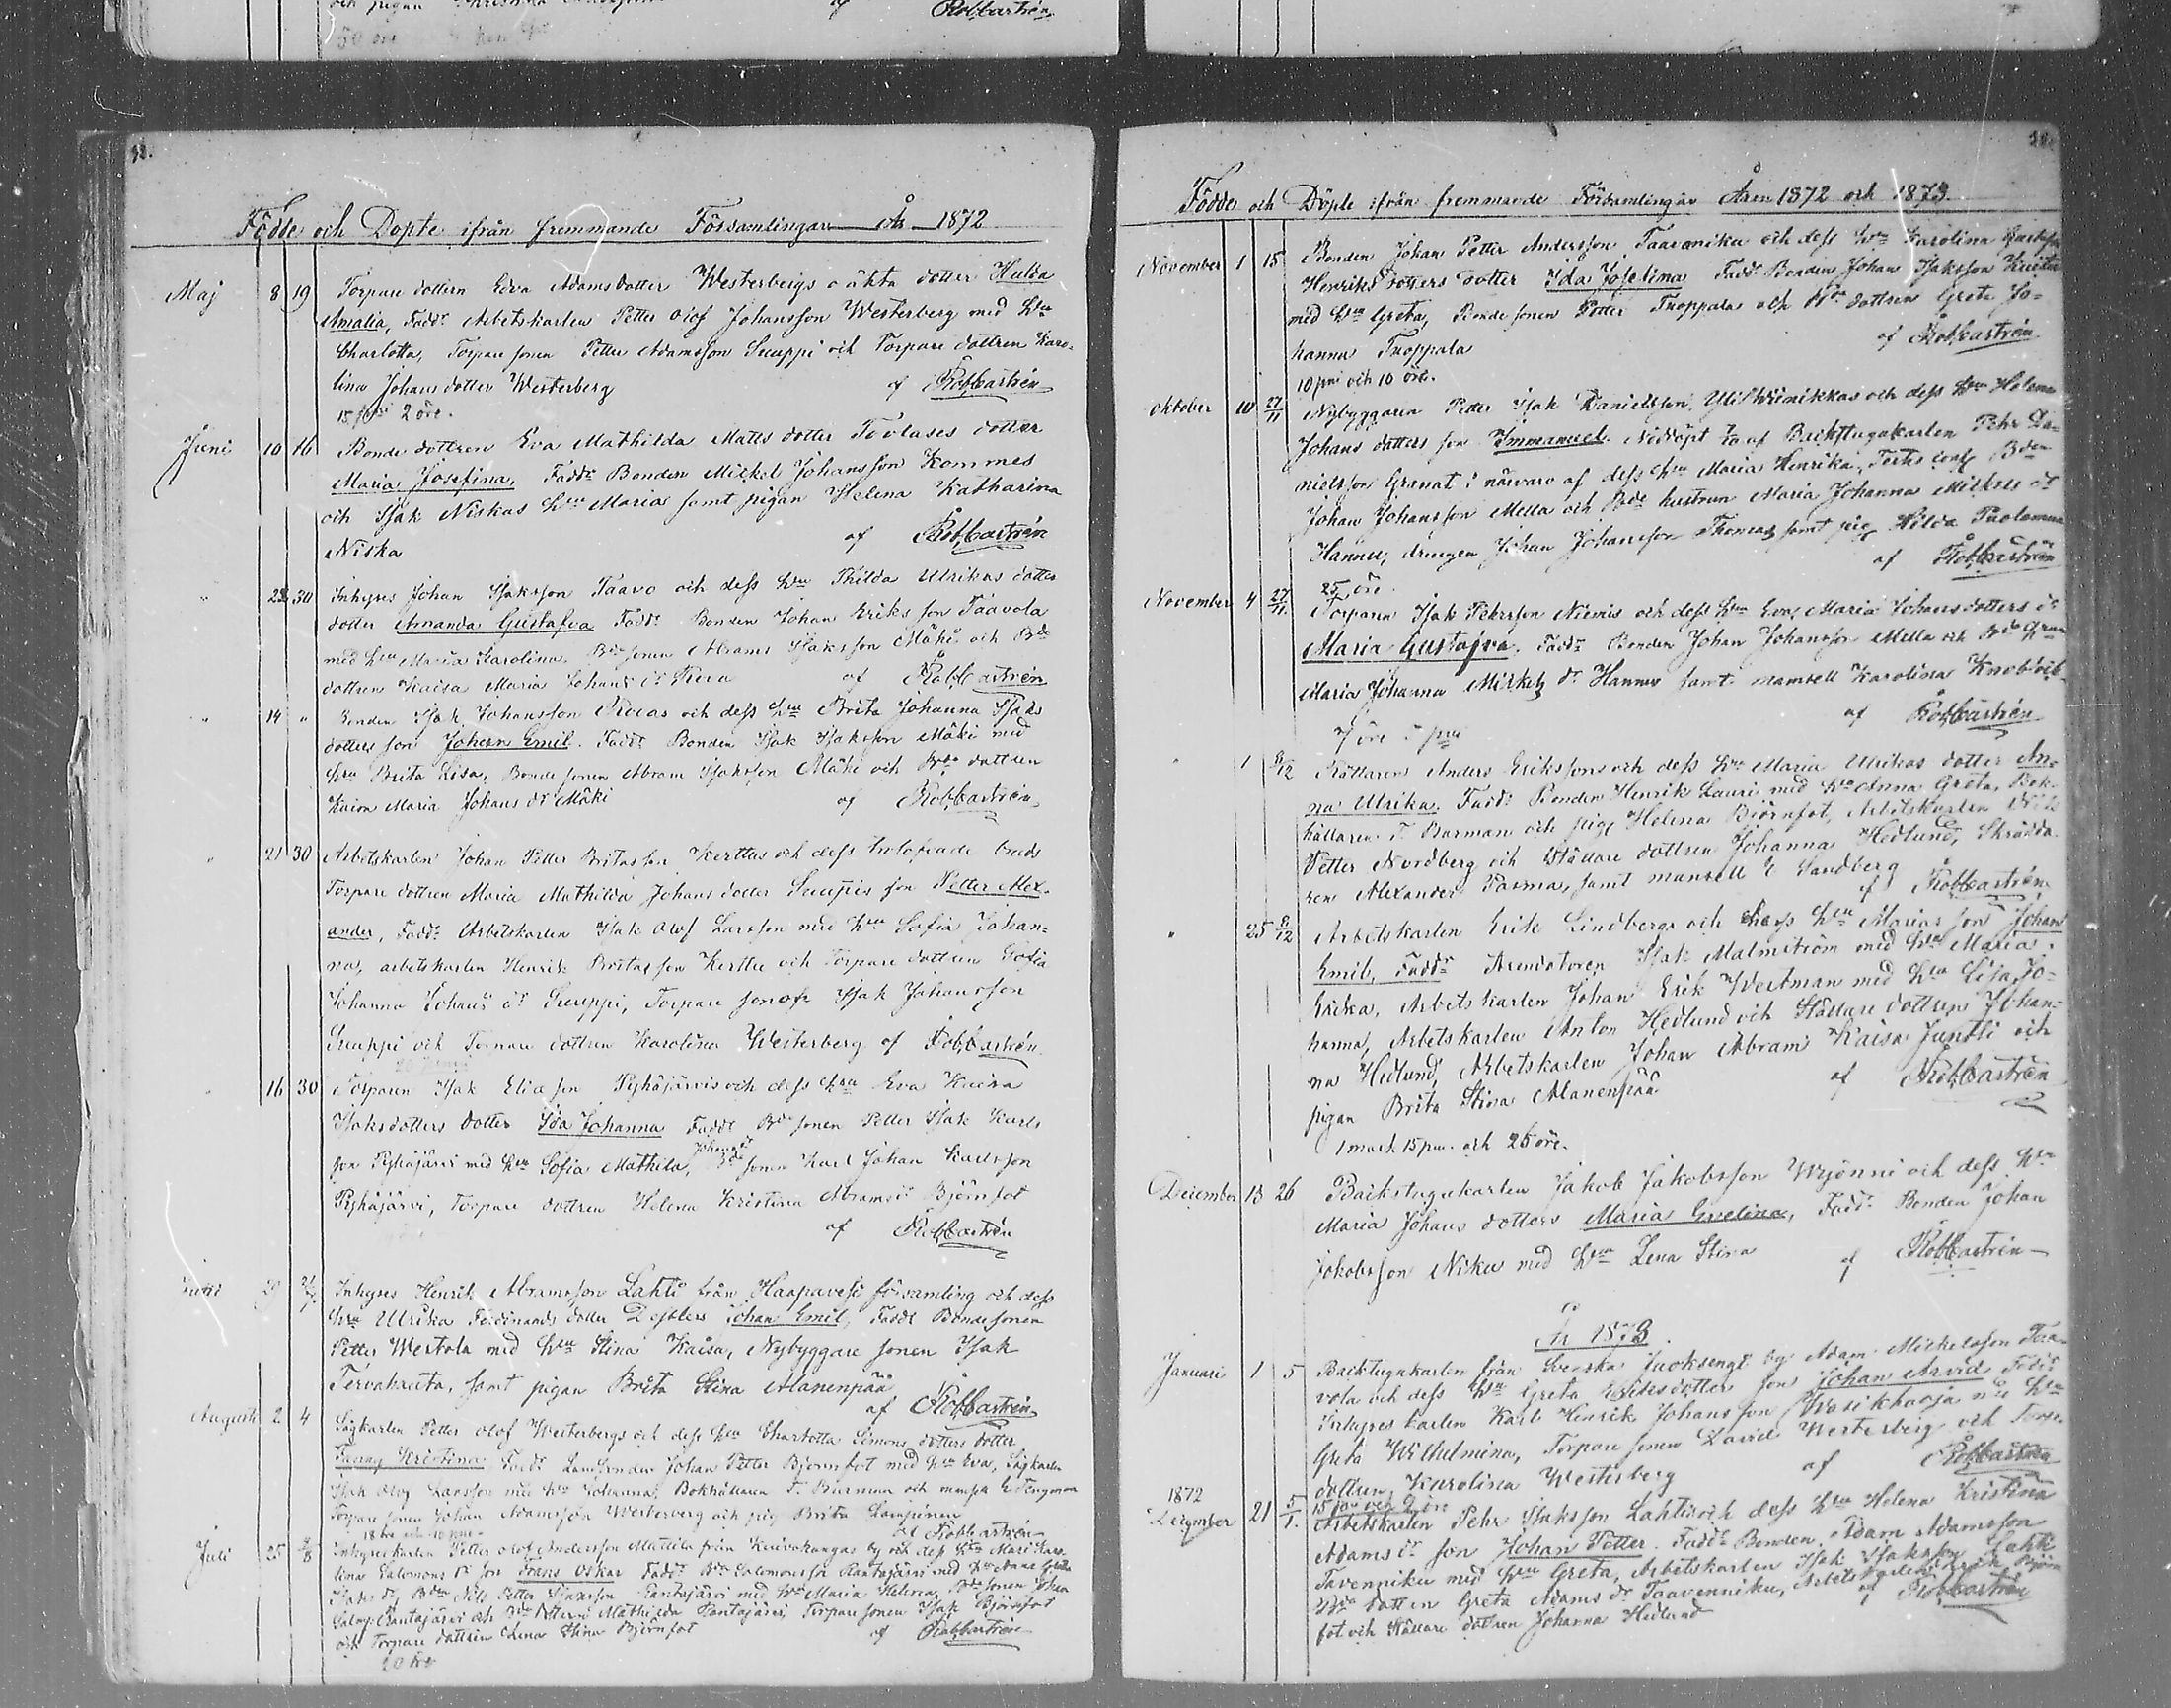 Rob Castrén
50 öre
Födde och Döpte ifrån fremmande Församlingar År 1872
Maj 8 19 Torpare dottern Edva Adamsdotter Westerbergs oäkta dotter Hulda
Amalia, Fadd: Arbetskarlen Petter Olof Johansson Westerberg med hru
Charlotta, Torpare sonen Petter Adamsson Snuppi och Torpare dottren Karo-
lina Johans dotter Westerberg af Rob Castrén
2 öre.
Juni 10 16 Bonde dottren Eva Mathilda Matts dotter dotter
Maria Josefina, Fadd: Bonden Mickel Johansson Kommes
och Isak Niskas hru Maria samt pigan Helena Katharina
Niska af Rob Castrén
" 30 Inhyses Johan Isaksson Taavo och dess hru Thilda Ulrikas dotter
dotter Amanda Gustafva Fadd: Bonden Johan Eriks son Taavola
med hru Maria Karolina, Bde sonen Abram Isaksson Mäki och Bde
dottren Kaisa Maria Johans dr af Rob Castrén
" 14 " Bonden Isak Johansson och dess hru Brita Johanna Isaks
dotters son Johan Emil. Fadd: Bonden Isak Isaksson Mäki med
hru Brita Lisa, Bonde sonen Abram Isaksson Mäki och Bde dottren
Maria Johans dr Mäki af Rob Castrén
" 21 30 Arbetskarlen Johan Petter Britasson Kerttus och dess trolofvade
Torpare dottren Maria Mathilda Johans dotter son Petter Alex-
ander, Fadd: Arbetskarlen Isak Olof Larsson med hru Sofia Johan-
na, arbetskarlen Henrik Britasson Kerttu och Torpare dottren Sofia
Johanna Johans dr Snuppi, Torpare sonen Isak Johansson
Snuppi och Torpare dottren Karolina Westerberg af Rob Castrén
16 30 Torparen Isak Elias son Pyhäjärvis och dess hru Eva Kaisa
Isaksdotters dotter Ida Johanna Fadd: Bde sonen Petter Isak Karls
son Pyhäjärvi med hru Sofia Mathilda, Bde sonen Karl Johan Karlsson
Pyhäjärvi, Torpare dottren Helena Kristina Abrams dr Björnfot
af Rob Castrén
Inhyses Henrik Abramsson Lahti från Haapavesi församling och dess
hru Ulrika Ferdinands dotter Johan Emil, Fadd: Bondesonen
Petter Wertola med hru Stina Kaisa, Nybyggare sonen Isak
Tervahauta, samt pigan Brita Stina Alanenpää
af Rob Castrén
Augusti 2 4 Sågkarlen Petter Olof Westerbergs och dess hru Charlotta Simons dotters dotter
Fanny Kristina Fadd: Johan Petter Björnfot med hru Eva, Sågkarlen
Isak Olof Larsson med hru Johanna, Bokhållaren F. Burman och mamsell
Torpare sonen Johan Adamsson Westerberg och pig Brita
af Rob Castrén
Juli 25 4/8 Inhyseskarlen Petter Olof Andersson Mattila från Kuivakangas by och dess hru Mari Karo-
lina Salomons dr son Frans Oskar Fadd: Bde Salomonsson Rantajärvi med hru Anna Greta
Isaks dr, Bden Nils Petter Isaksson Rantajärvi med hru Maria Helena, Bde sonen Johan
Salmp. Rantajärvi och Bde dottren Mathilda Rantajärvi, Torpare sonen Isak Björnfot
och Torpare dottren Lena Stina Björnfot af Rob Castrén
20 öre
Födde och Döpte ifrån fremmande Församlingar Åren 1872 och 1873.
November 1 15 Bonden Johan Petter Andersson Taaraniku och dess hru Karolina
Henriks dotters dotter Ida Josefina Fadd: Bonden Johan Isaksson
med hru Greta, Bonde sonen Petter Tuoppala och Bde dottren Greta Jo-
hanna Tuoppala af Rob Castrén
10 och 10 öre.
Oktober 10 27/11 Nybyggaren Petter Isak Danielsson och dess hru Helena
Johans dotters son Immanuel. Nöddöpt af Backstugukarlen Pehr Da-
nielsson Granat i närvaro af dess hru Maria Henrika, Bden
Johan Johansson Mella och Bde hustrun Maria Johanna Mickels dr
Hannu, drengen Johan Johansson Thomas samt pig Hilda
af Rob Castrén
25 öre.
November 4 27/11 Torparen Isak Pekrsson Niemis och dess hru Eva Maria Johansdotters dr
Maria Gustafva. Fadd: Bonden Johan Johansson Mella och Bde hrun
Maria Johanna Mickels dr Hannu samt mamsell Karolina
af Rob Castrén
7 öre
" 1 8/12 Stållaren Anders Erikssons och dess hru Maria Ulrikas dotter An-
na Ulrika. Fadd: Bonden Henrik Lauri med hru Anna Greta, Bok-
hållaren F. Burman och pig Helena Björnfot, Arbetskarlen Nils
Petter Nordberg och Stållare dottren Johanna Hedlund, Skrädda-
ren Alexander Parma, samt mamsell E Sandberg
af Rob Castrén
" 25 8/12 Arbetskarlen Erik Lindbergs och dess hru Marias son Johan
Emil, Fadd: Arendatoren Isak Malmström med hru Maria
Erika, Arbetskarlen Johan Erik Wertman med hru Lisa Jo-
hanna, Arbetskarlen Anton Hedlund och Stållare dottren Johan-
na Hedlund, Arbetskarlen Johan Abram Kaisa Juntti och
pigan Brita Stina Alanenpää af Rob Castrén
1 mark 15 pni och 25 öre.
December 13 26 Backstugukarlen Jakob Jakobsson och dess hru
Maria Johans dotters Maria Evelina, Fadd: Bonden Johan
Jakobsson Niku med hru Lena Stina af Rob Castrén
År 1873.
Januari 1 5 Backstugukarlen från Svenska by Adam Mickelsson Taa-
vola och dess hru Greta dotter son Johan Arvid Fadd:
Inhyses karlen Karl Henrik Johansson med hru
Greta Wilhelmina, Torpare sonen David Westerberg och Torpr
dottren Karolina Westerberg af Rob Castrén
1872
December 21 5/1. Arbetskarlen Pehr Isaksson Lahtis och dess hru Helena Kristina
Adams dr son Johan Petter. Fadd: Bonden Adam Adamsson
Taavenniku med hru Greta, Arbetskarlen Isak Isaksson Lahti
Bde dottren Greta Adams dr Taavenniku, Arbetskarlen Björn-
fot och Stållare dottren Johanna Hedlund af Rob Castrén